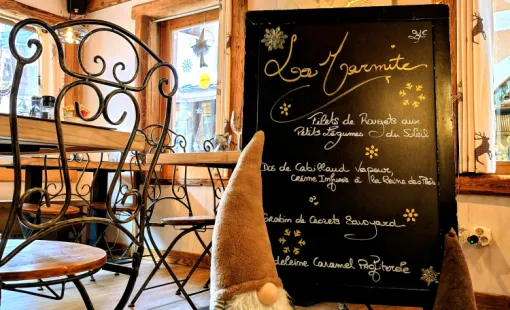 La Marmite
Filets de Rougets aux
Petits Légumes du Soleil
Dos de Cabillaud Vapeur,
Crème Infusée à la Reine des Prés
Gratin de Crozets Savoyard
deleine Caramel Profiterole